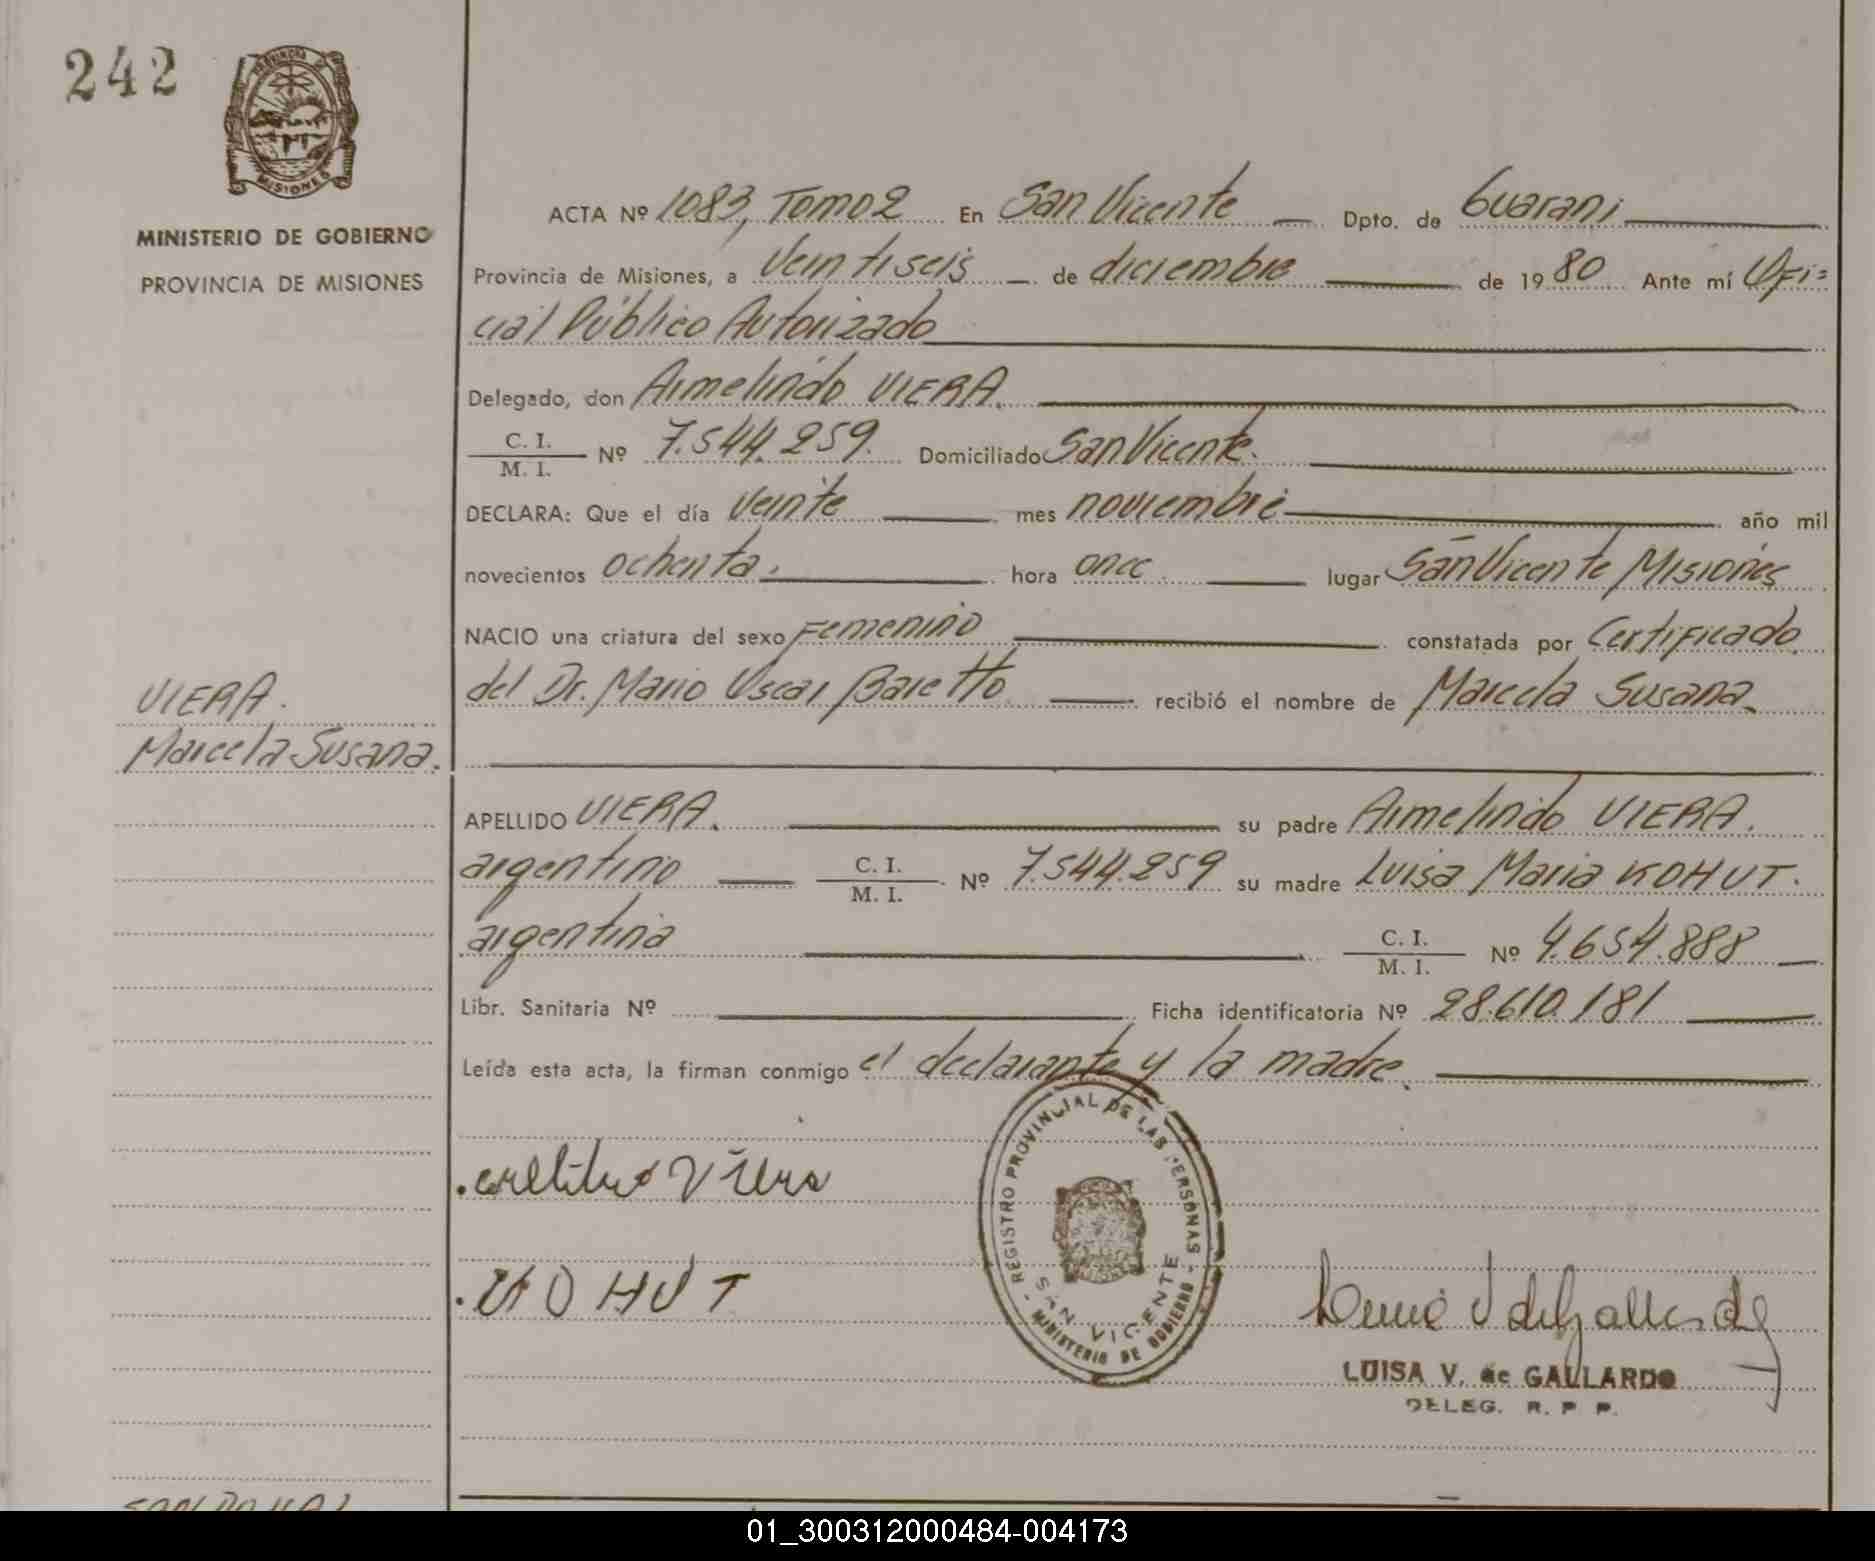 242
PROVINCIA DE
MISIONES
MINISTERIO DE GOBIERNO
PROVINCIA DE MISIONES
ACTA Nº 1083, Tomo 2 En San Vicente Dpto. de Guarani
Provincia de Misiones, a Veintiseis de diciembre de 1980 Ante mí Ofi=
cial Público Autorizado
Delegado, don Armelindo VIERA.
C. I.
M. I. Nº 7.544.259. Domiciliado San Vicente.
DECLARA: Que el día veinte mes noviembre año mil
novecientos ochenta. hora once lugar San Vicente Misiones
NACIO una criatura del sexo Femenino constatada por Certificado
del Dr. Mario Oscar Baretto recibió el nombre de Marcela Susana.
VIERA.
Marcela Susana.
APELLIDO VIERA. su padre Armelindo VIERA.
argentino C. I.
M. I. Nº 7.544.259 su madre Luisa Maria KOHUT.
argentina C. I.
M. I. Nº 4.654.888
Libr. Sanitaria Nº Ficha identificatoria Nº 28.610.181
Leída esta acta, la firman conmigo el declarante y la madre.
REGISTRO PROVINCIAL DE LAS PERSONAS
SAN VICENTE
MINISTERIO DE GOBIERNO
Viera
KOHUT
LUISA V. de GALLARDO
DELEG. R. P. P.
01_300312000484-004173